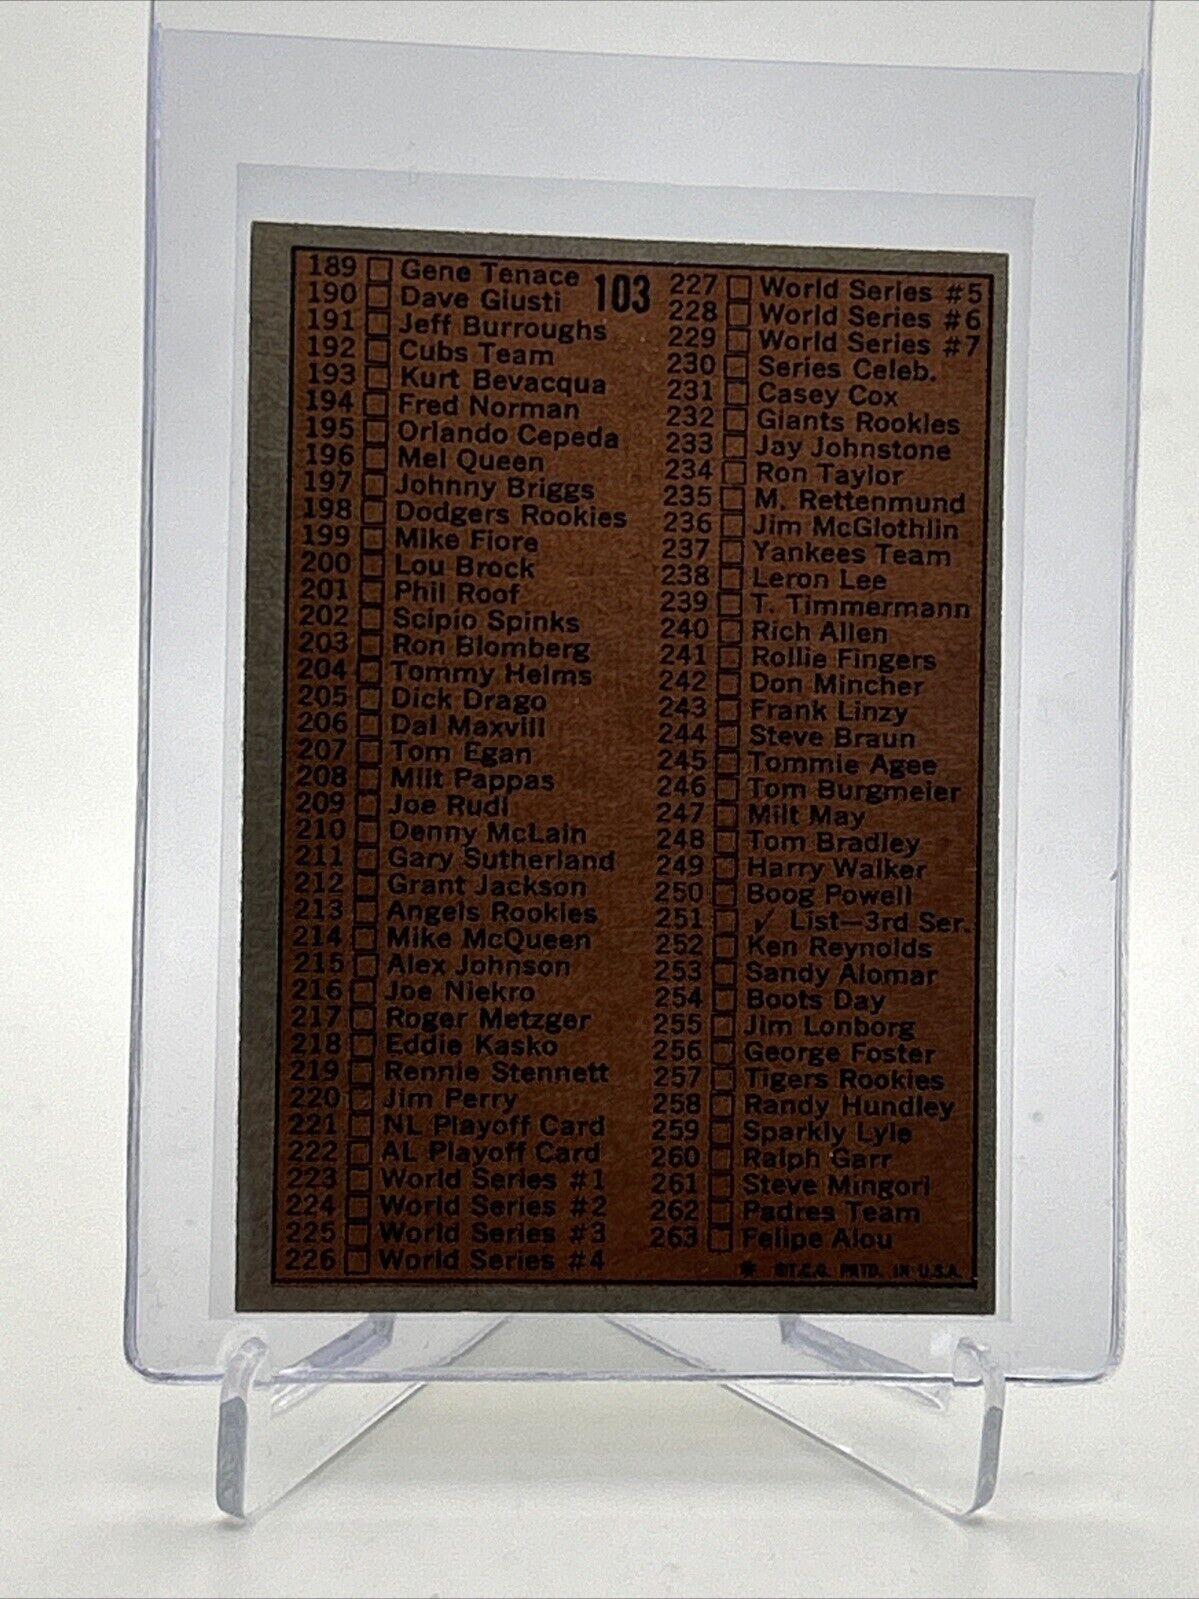 189 Gene Tenace
190 Dave Giusti
191 Jeff Burroughs
192 Cubs Team
193 Kurt Bevacqua
194 Fred Norman
195 Orlando Cepeda
196 Mel Queen
197 Johnny Briggs
198 Dodgers Rookies
199 Mike Fiore
200 Lou Brock
201 Phil Roof
202 Scipio Spinks
203 Ron Blomberg
204 Tommy Helms
205 Dick Drago
206 Dal Maxvill
207 Tom Egan
208 Milt Pappas
209 Joe Rudi
210 Denny McLain
211 Gary Sutherland
212 Grant Jackson
213 Angels Rookies
214 Mike McQueen
215 Alex Johnson
216 Joe Niekro
217 Roger Metzger
218 Eddie Kasko
219 Rennie Stennett
220 Jim Perry
221 NL Playoff Card
222 AL Playoff Card
223 World Series #1
224 World Series #2
225 World Series #3
226 World Series #4
103
227 World Series #5
228 World Series #6
229 World Series #7
230 Series Celeb.
231 Casey Cox
232 Giants Rookies
233 Jay Johnstone
234 Ron Taylor
235 M. Rettenmund
236 Jim McGlothlin
237 Yankees Team
238 Leron Lee
239 T. Timmermann
240 Rich Allen
241 Rollie Fingers
242 Don Mincher
243 Frank Linzy
244 Steve Braun
245 Tommie Agee
246 Tom Burgmeier
247 Milt May
248 Tom Bradley
249 Harry Walker
250 Boog Powell
251 ✓ List—3rd Ser.
252 Ken Reynolds
253 Sandy Alomar
254 Boots Day
255 Jim Lonborg
256 George Foster
257 Tigers Rookies
258 Randy Hundley
259 Sparkly Lyle
260 Ralph Garr
261 Steve Mingori
262 Padres Team
263 Felipe Alou
* ©T.C.G. PRTD. IN U.S.A.